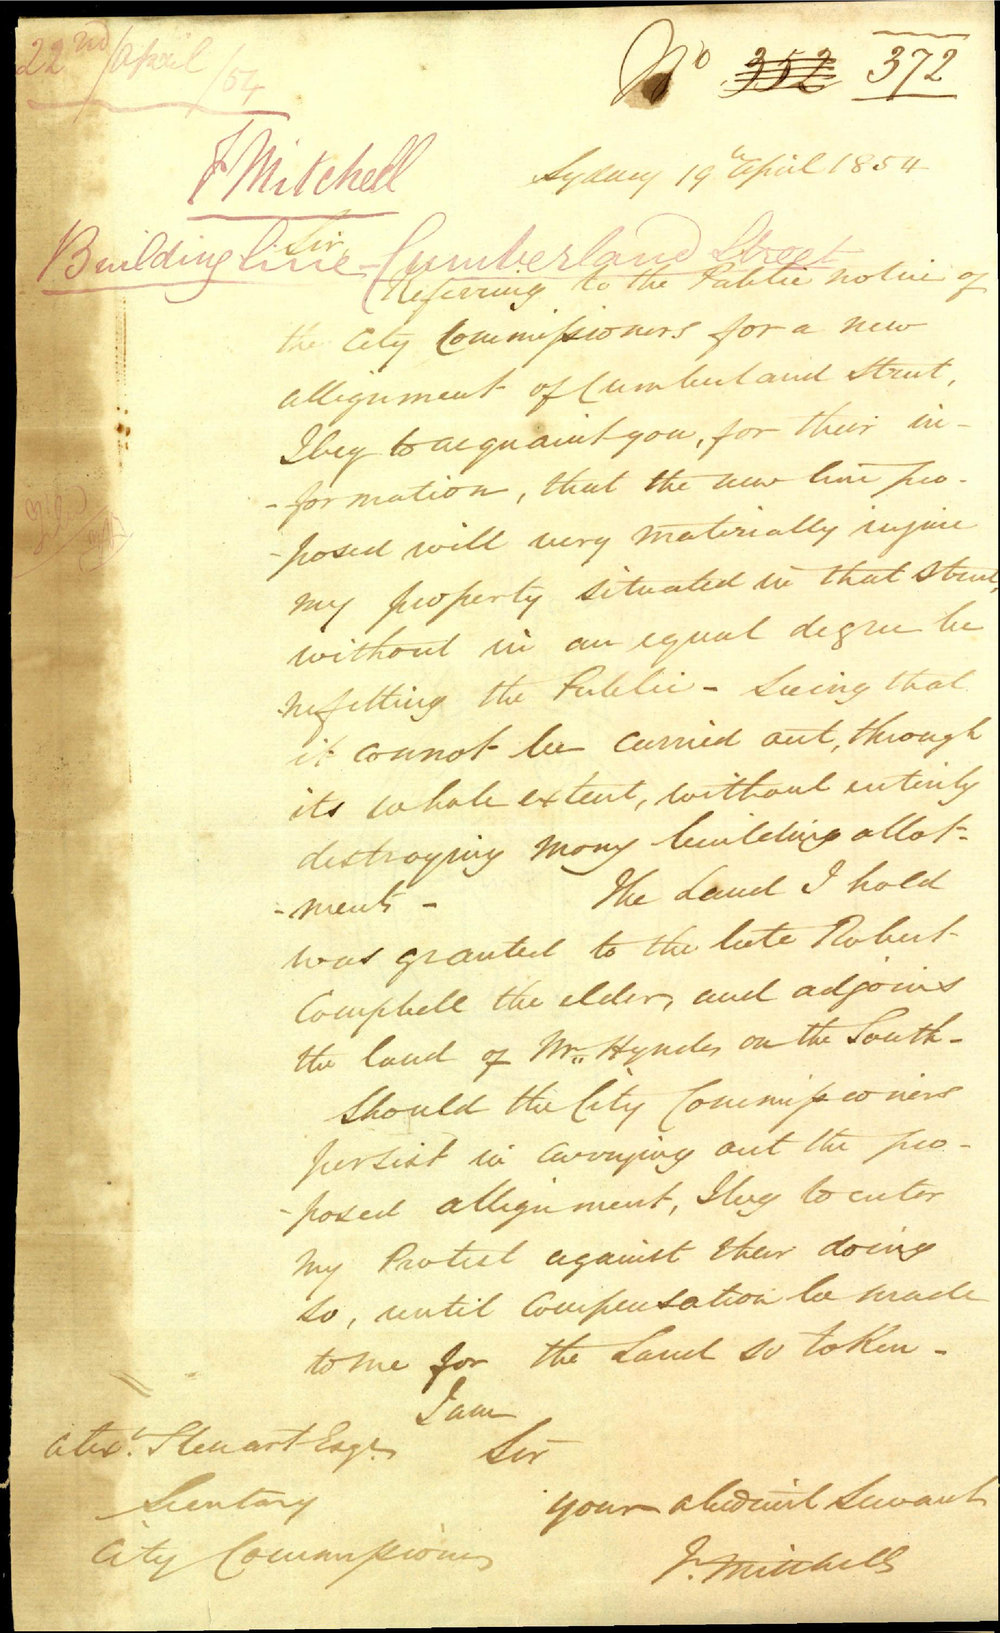 22nd/April/54
No 352 372
F Mitchell
Sydney 19th April 1854
Sir
Building line - Cumberland Street
Referring to the Public notice of
the City Commissioners for a new
allignment of Cumberland Street,
I beg to acquaint you, for their in-
-formation, that the new line pro-
-posed will very materially injure
my property situated in that Street,
without in an equal degree be
nefitting the Public - Seeing that
it cannot be carried out, through
its whole extent, without entirely
destroying many building allot-
-ments - The Land I hold
was granted to the late Robert
Campbell the elder, and adjoins
the land of Mr. Hyndes on the South -
Should the City Commissioners
persist in carrying out the pro-
-posed allignment, I beg to enter
my Protest against their doing
so, until Compensation be made
to me for the Land so taken -
I am
Sir
Alexr. Steuart Esqr.
Secretary
City Commissioners
your obedient Servant
F. Mitchell